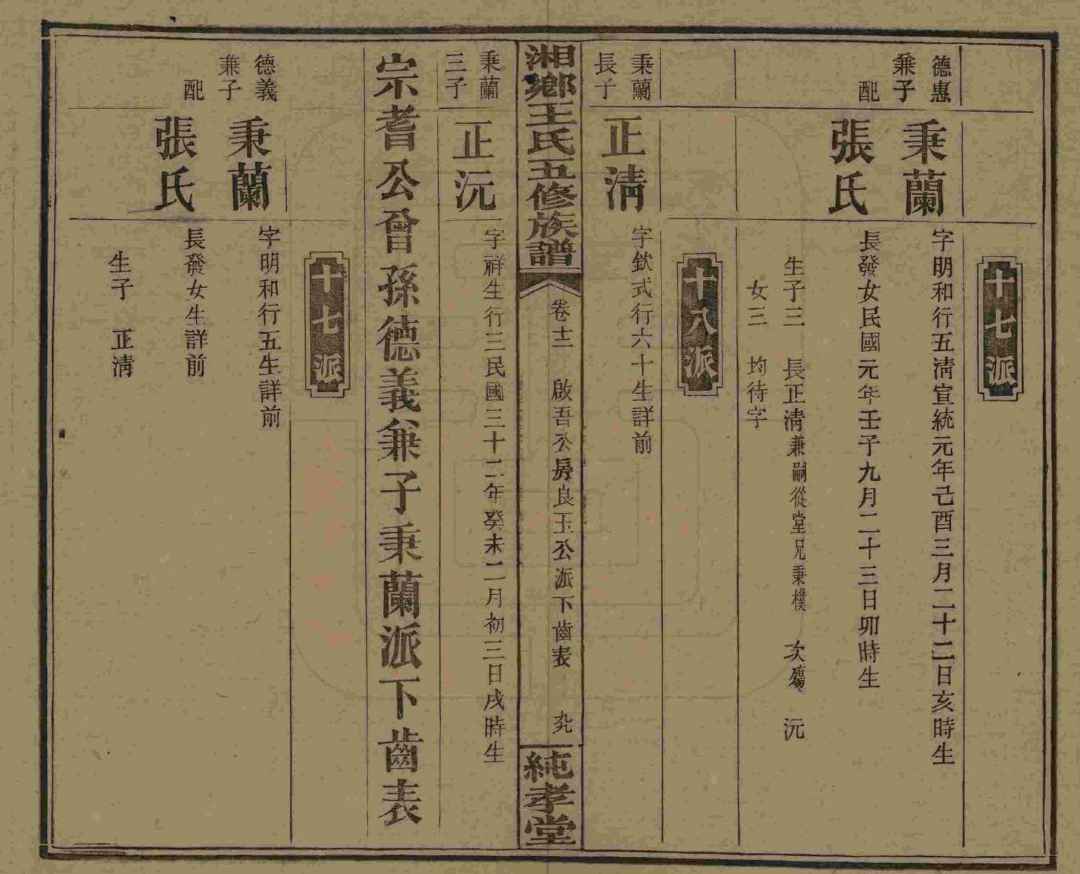 十七派
德惠兼子
秉蘭
字明和行五清宣統元年己酉三月二十二日亥時生
配
張氏
長發女民國元年壬子九月二十三日卯時生
生子三 長正清兼嗣從堂兄秉樸 次殤 沅
女三 均待字
十八派
秉蘭長子
正清
字欽式行六十生詳前
湘鄉王氏五修族譜
卷十二 啟吾公房良玉公派下齒表 九
純孝堂
秉蘭三子
正沅
字祥生行三民國三十二年癸未二月初三日戌時生
宗耆公曾孫德義兼子秉蘭派下齒表
十七派
德義兼子
秉蘭
字明和行五生詳前
配
張氏
長發女生詳前
生子 正清